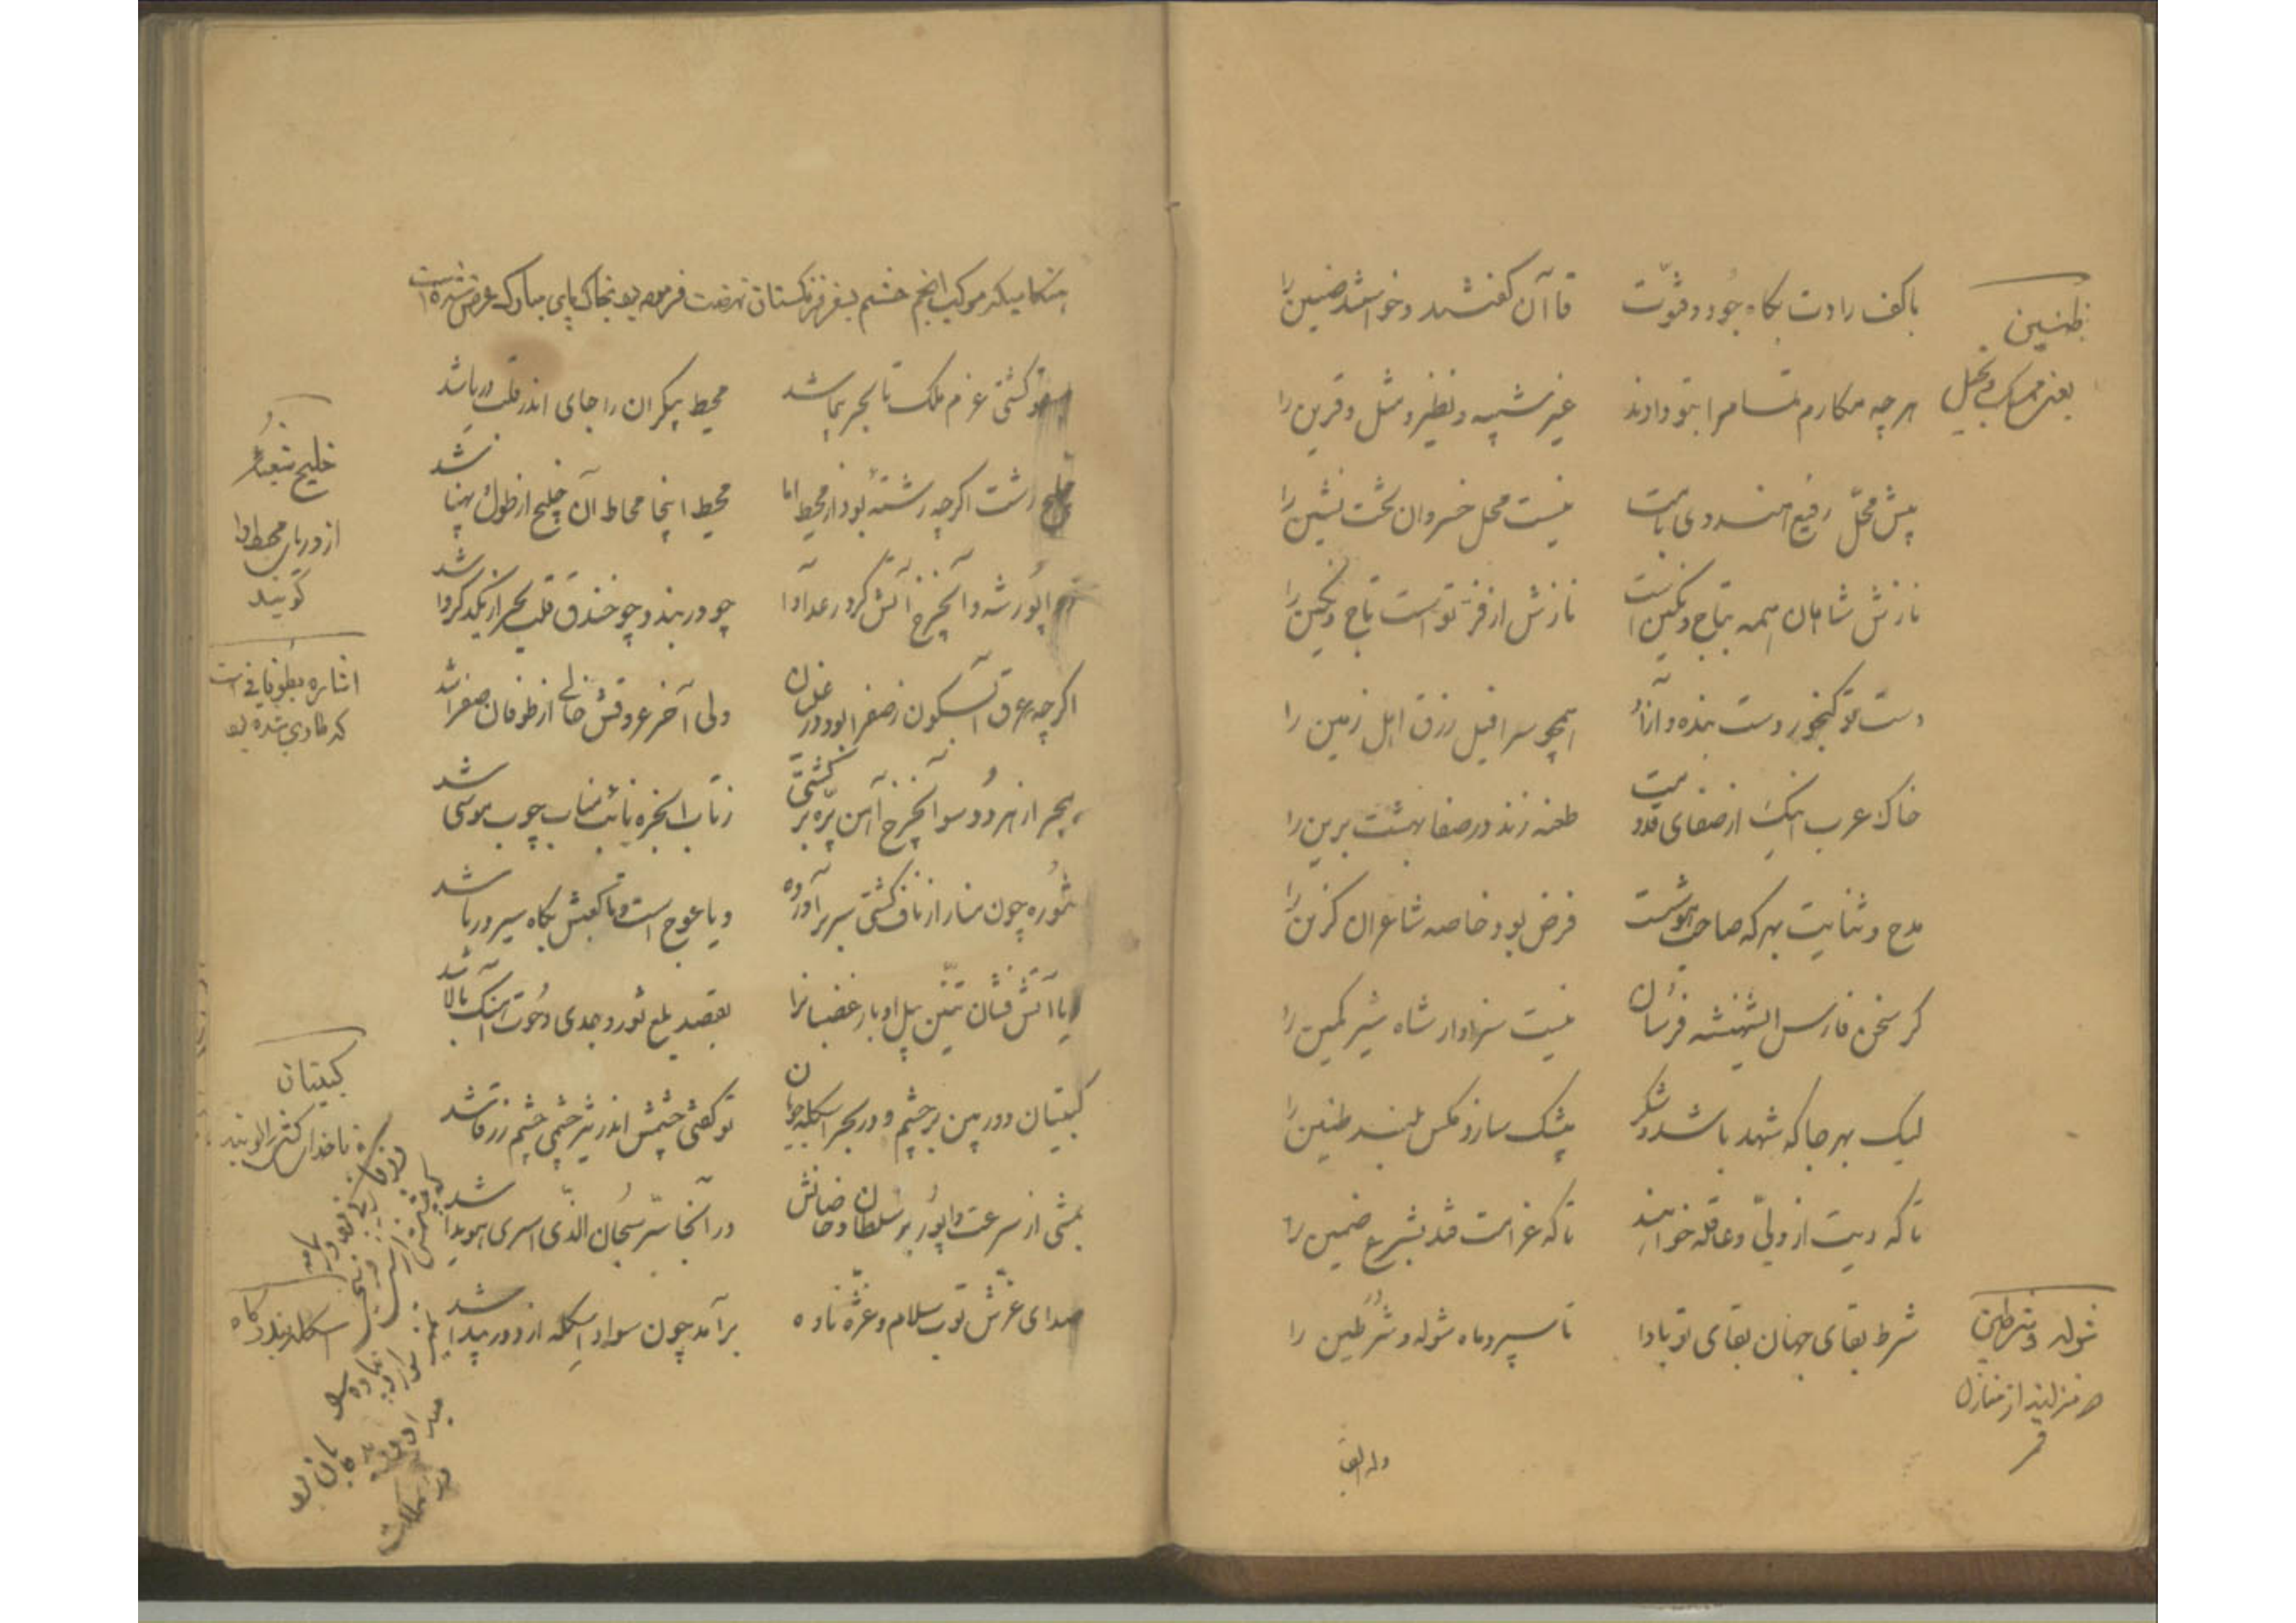 با کف رادت بگاه جود و فتوّت
قاآن گفتند و خواستند ضنین را
هر چه مکارم مسلم را بتو دادند
غیر شبیه و نظیر و مثل و قرین را
پیش محلّ رفیع هندوی بامت
نیست محل خسروان تخت نشین را
نازش شاهان همه بتاج و نگین است
نازش از فرّ تو است تاج و نگین را
دست تو گنجور دست بنده و آزاد
همچو سرافیل رزق اهل زمین را
خاک عرب اینک از صفای قدومت
طعنه زند در صفا بهشت برین را
مدح و ثنایت بهر که صاحب هوشست
فرض بود خاصه شاعران گزین را
گر سخن فارس الشهنشه فرسان
نیست سزاوار شاه شیر کمین را
لیک بهر جا که شهد باشد و شکر
پشک سازد مگس بلند طنین را
تا که دیت از ولیّ و عاقله خواهند
تا که غرامت فتد بشرع ضمین را
شرط بقای جهان بقای تو بادا
تا سپرد ماه شوله و شرطین را
وله ایضا
ظنین
یعنی ممسک و بخیل
شوله و شرطین
دو منزلند از منازل
قمر
هنگامیکه موکب انجم حشم بسفر فرنگستان نهضت فرموده بود بخاکپای مبارک عرض شده است
چو کشتی عزم ملک تا بحر پیما شد
محیط بیکران را جای اندر قلب دریا شد
خلیج رشت اگر چه رشتهٔ بود از محیط اما
محیط اینجا محاط آن خلیج از طول و پهنا شد
واپور شه و آنچرخ آتش گرد رعد آوا
چو دربند و چو خندق قلب بحر از یکدگر وا شد
اگر چه عرق آبسکون ز صفرا بود در غلیان
ولی آخر عروقش خالی از طوفان صفرا شد
ببحر از هر دو سو آنچرخ آهن پرّه بر کشتی
زتاب ابخره نائب مناب چوب موسی شد
تنوره چون منار از ناف کشتی سر بر آورده
و یا عوج است و تا کعبش بگاه سیر دریا شد
و یا آتش فشان تنّین پیل اوبار غضبانرا
بقصد بلع ثور و جدی و حوت آهنگ بالا شد
کپیتان دوربین بر چشم و در بحر اسکله جویان
تو گفتی چشمش اندر تیز چشمی چشم زرقا شد
بمشی از سرعت واپور بر سلطان و خاصانش
در آنجا سرّ سبحان الذّی اسری هویدا شد
صدای غرّش توپ سلام و غرّه نا ده
برآمد چون سواد اسکله از دور پیدا شد
خلیج شعبهٔ
از دریای محیط را
گویند
اشاره بطوفانی است
که طاری شده بود
کپیتان
ناخدای کشتی را گویند
اسکله بندرگاه